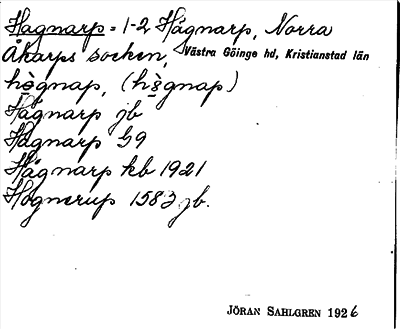 Hagnarp = 1-2 Hågnarp, Norra
Åkarps socken, Västra Göinge hd, Kristianstad län
hògnap, (hògnap)
Hågnarp jb
Hågnarp G9
Hågnarp kb 1921
Hognerup 1583 jb.
JÖRAN SAHLGREN 1926